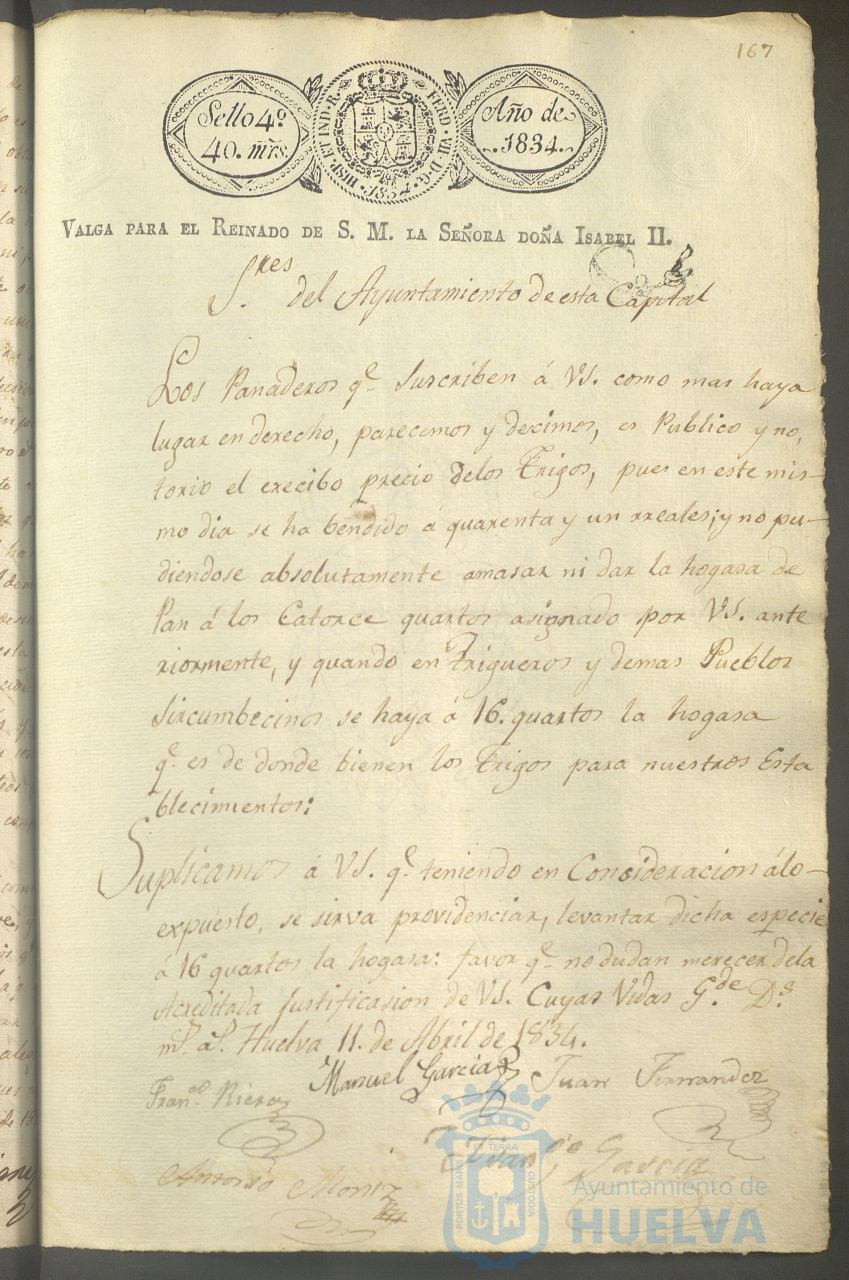 167
Sello 4º
40. mrs.
HISP. ET IND. R. FERD. VII. D. G.
1834
Año de
1834.
VALGA PARA EL REINADO DE S. M. LA SEÑORA DOÑA ISABEL II.
S.res del Ayuntamiento de esta Capital
Los Panaderos q.e Suscriben á VS. como mas haya
lugar en derecho, parecemos y decimos, es Publico y no,
torio el crecibo precio delos Trigos, pues en este mis-
mo dia se ha bendido á quarenta y un rreales; y no pu-
diendose absolutamente amasar ni dar la hogasa de
Pan á los Catorce quartos asignado por VS. ante
riormente, y quando en Trigueros y demas Pueblos
Sircumbecinos se haya á 16. quartos la hogasa
q.e es de donde bienen los Trigos para nuestros Esta
blecimientos:
Suplicamos á VS. q.e teniendo en Consideracion álo-
expuesto, se sirva providenciar, levantar dicha especie
á 16 quartos la hogasa: favor q.e no dudan merecer dela
Acreditada Justificasion de VS. Cuyas Vidas G.de D.s
m.s a.s Huelva 11. de Abril de 1834.
Manuel Garcia Juan Fernandez
Fran.co Riera
Fran.co Garcia
Antonio Moriz
PORTUS MARIS ET TERRÆ CUSTODIA
Ayuntamiento de
HUELVA